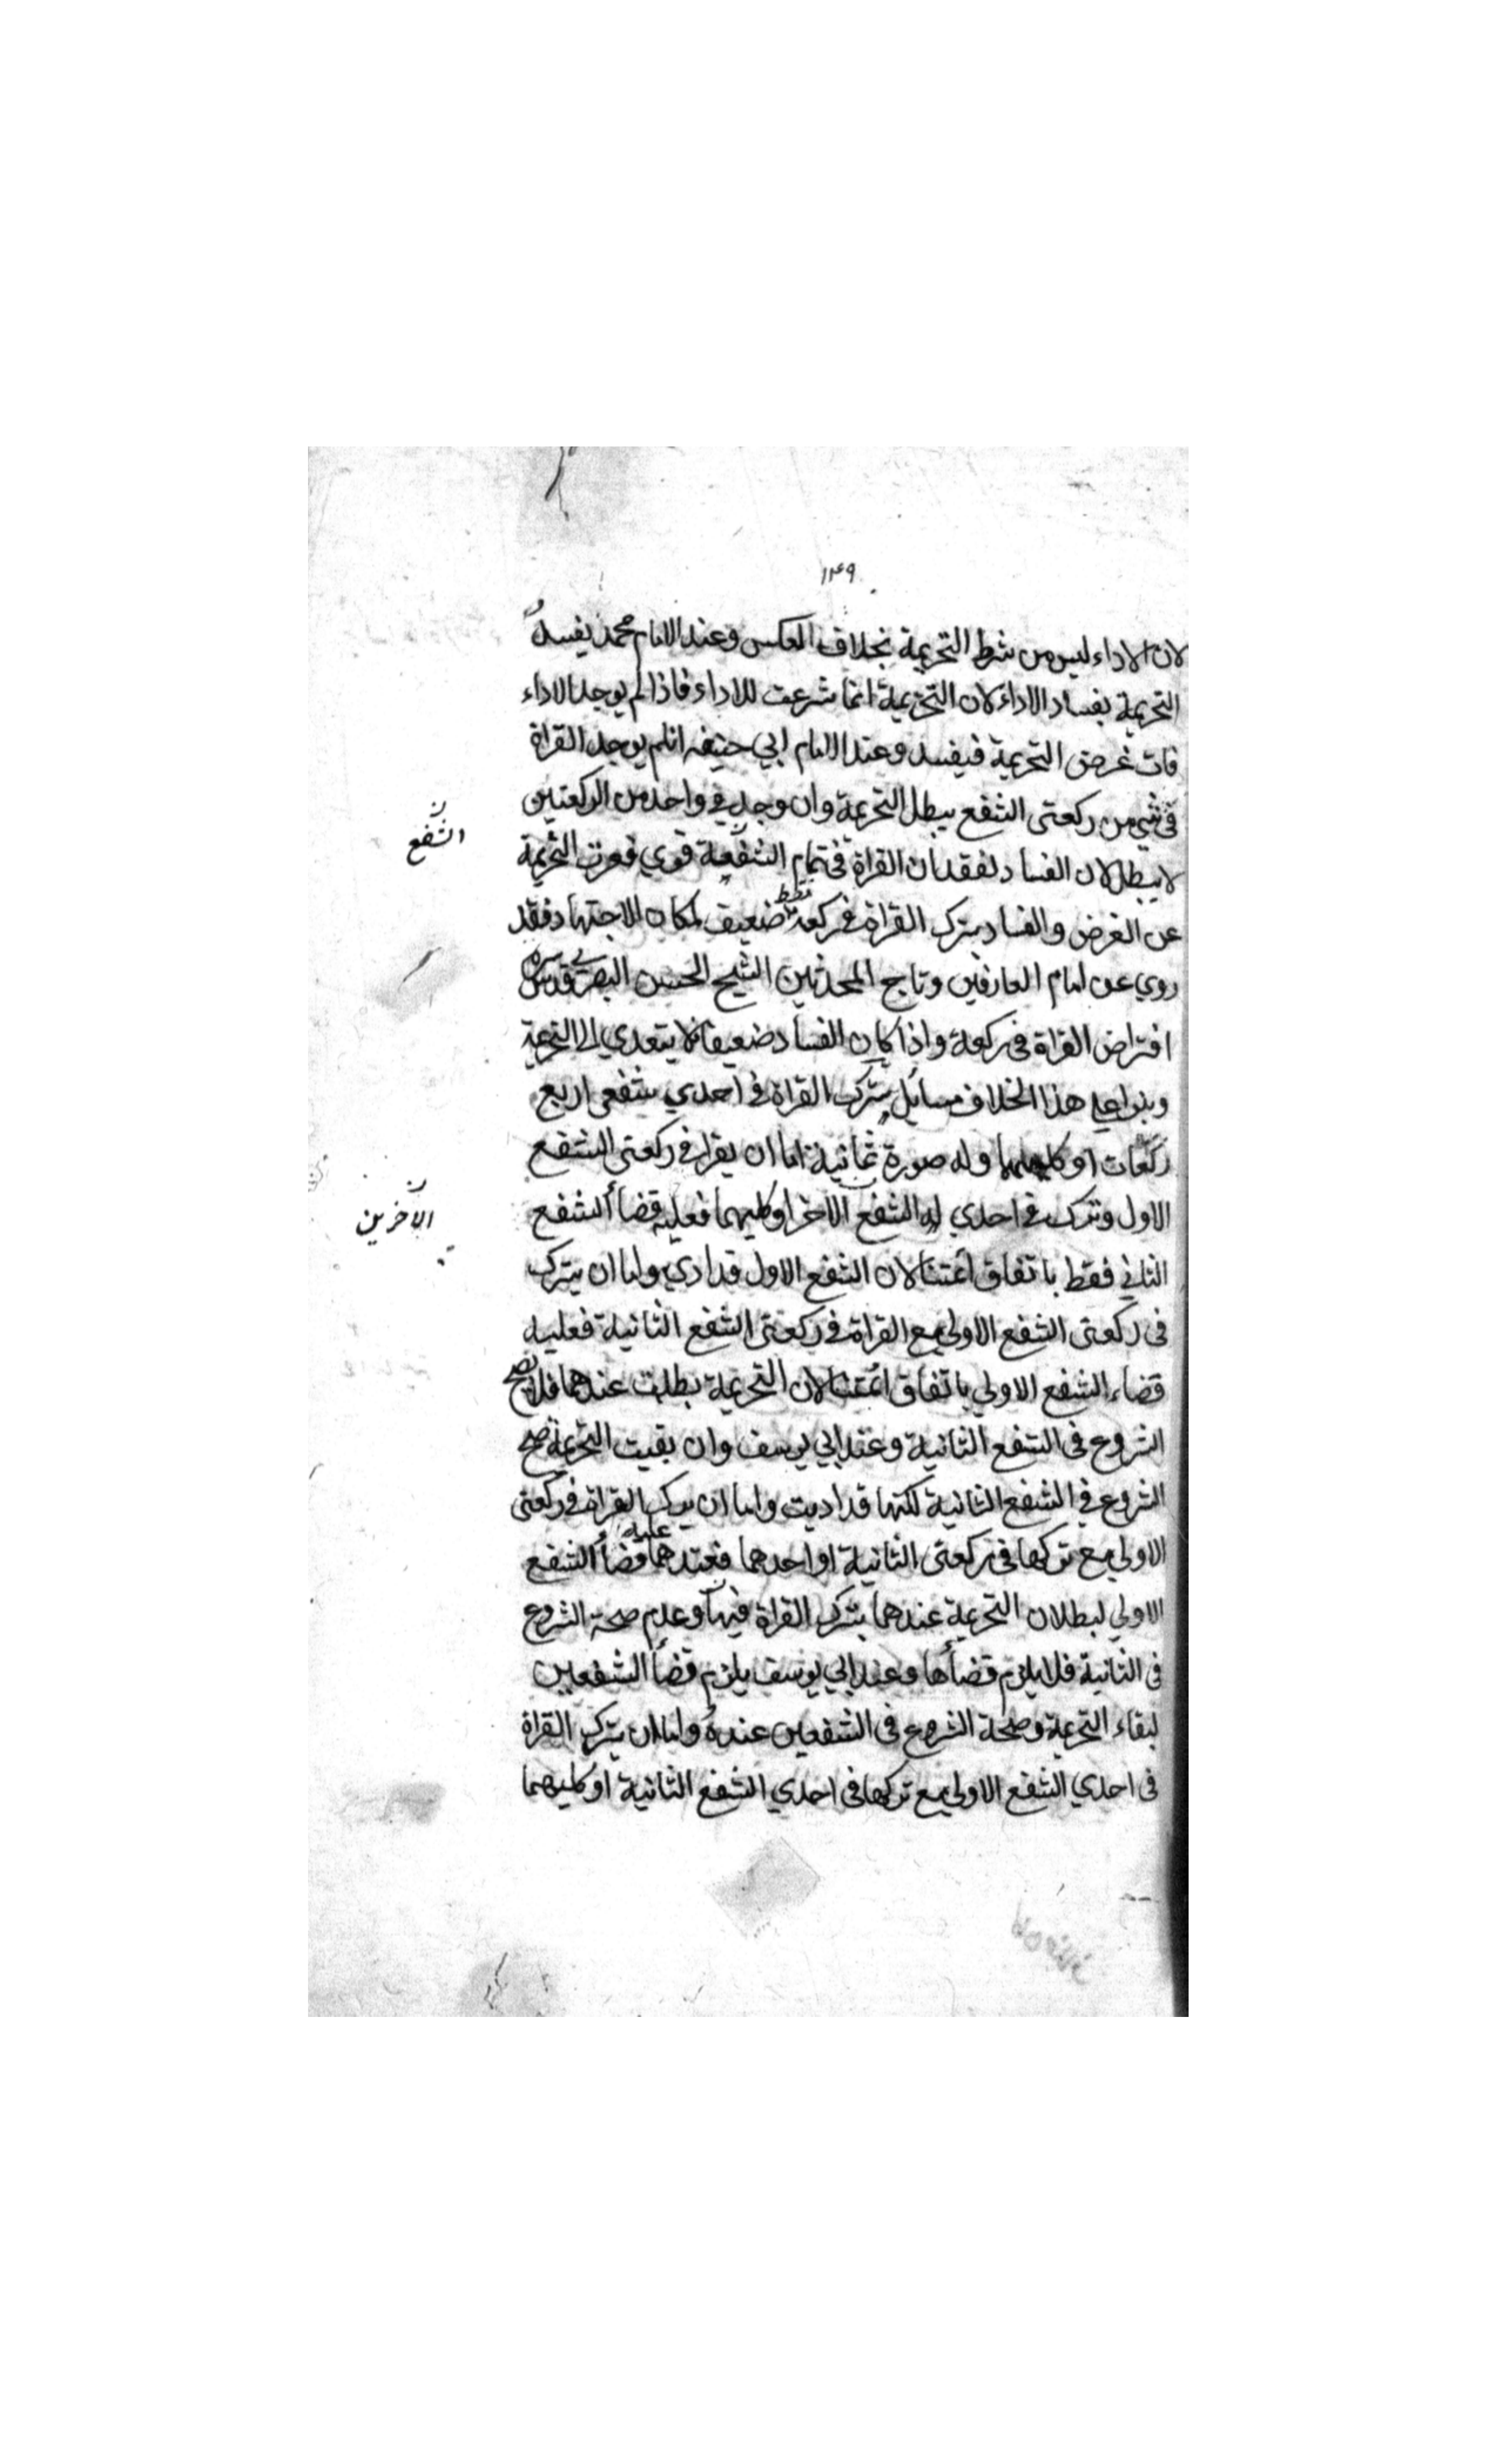 ١٣٩
لان الاداء ليس من شرط التحريمة بخلاف العكس وعند الامام محمد يفسد
التحريمة بفساد الاداء لان التحريمة انما شرعت للاداء فاذا لم يوجد الاداء
فات غرض التحريمة فيفسد وعند الامام ابي حنيفه ان لم يوجد القراة
فى شي من ركعتى الشفع يبطل التحريمة وان وجد في واحد من الركعتين
الشفع
لا يبطل لان الفساد لفقدان القراة في تمام الشفعة قوي فعرت التحريمة
عن الغرض والفساد بترك القراة في ركعة فقط ضعيف لمكان الاجتهاد فقد
روي عن امام العارفين وتاج المحدثين الشيخ الحسن البصري قدس سره
افتراض القراة فى ركعة واذا كان الفساد ضعيفا فلا يتعدي الى التحريمة
وبنوا على هذا الخلاف مسائل بترك القراة في احدي شفعى اربع
ركعات او كليهما وله صورة ثمانية اما ان يقرا في ركعتى الشفع
الاول وترك في احدي الشفع الاخر او كليهما فعليه قضاء الشفع
الآخرين
الثاني فقط باتفاق ائمتنا لان الشفع الاول قد ادي واما ان يترك
فى ركعتى الشفع الاولي مع القراة في ركعتى الشفع الثانية فعليه
قضاء الشفع الاولي باتفاق ائمتنا لان التحريمة بطلت عندهما فلا يصح
الشروع فى الشفع الثانية وعند ابي يوسف وان بقيت التحريمة صح
الشروع في الشفع الثانية لكنها قد اديت واما ان يترك القراة في ركعتى
الاولي مع تركها فى ركعتى الثانية او احدهما فعندهما عليه قضاء الشفع
الاولي لبطلان التحريمة عندهما بترك القراة فيها وعدم صحة الشروع
فى الثانية فلا يلزم قضاءها وعند ابي يوسف يلزم قضاء الشفعين
لبقاء التحريمة وصحة الشروع فى الشفعين عنده واما ان يترك القراة
فى احدي الشفع الاولي مع تركها فى احدي الشفع الثانية او كليهما